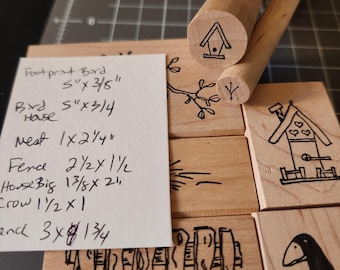 Footprint Bird
5" x 3/8"
Bird 5" x 3/4
House
Nest 1 x 2 1/4"
Fence 2 1/2 x 1 1/2
House Big 1 3/8 x 2"
Crow 1 1/2 x 1
3 x 1 3/4